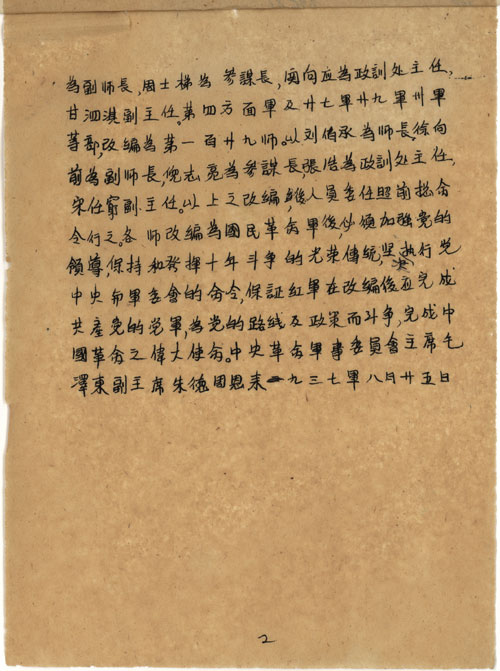 為副师長,周士梯為參謀長,関向应為政訓处主任,
甘泗淇副主任。第四方面軍及廿七軍廿九軍卅軍
等部,改編為第一百廿九师。以刘伯承為师長,徐向
前為副师長,倪志亮為參謀長,張浩為政訓处主任,
宋任窮副主任。以上之改編,後人員委任照前總命
令行之。各师改編為國民革命軍後,必须加強党的
領導,保持和發揮十年斗争的光荣傳統,坚决执行党
中央和軍委會的命令,保証紅軍在改編後应完成
共產党的党軍,為党的路线及政策而斗争,完成中
國革命之偉大使命。中央革命軍事委員會主席毛
澤東副主席朱德周恩来一九三七年八月廿五日
2